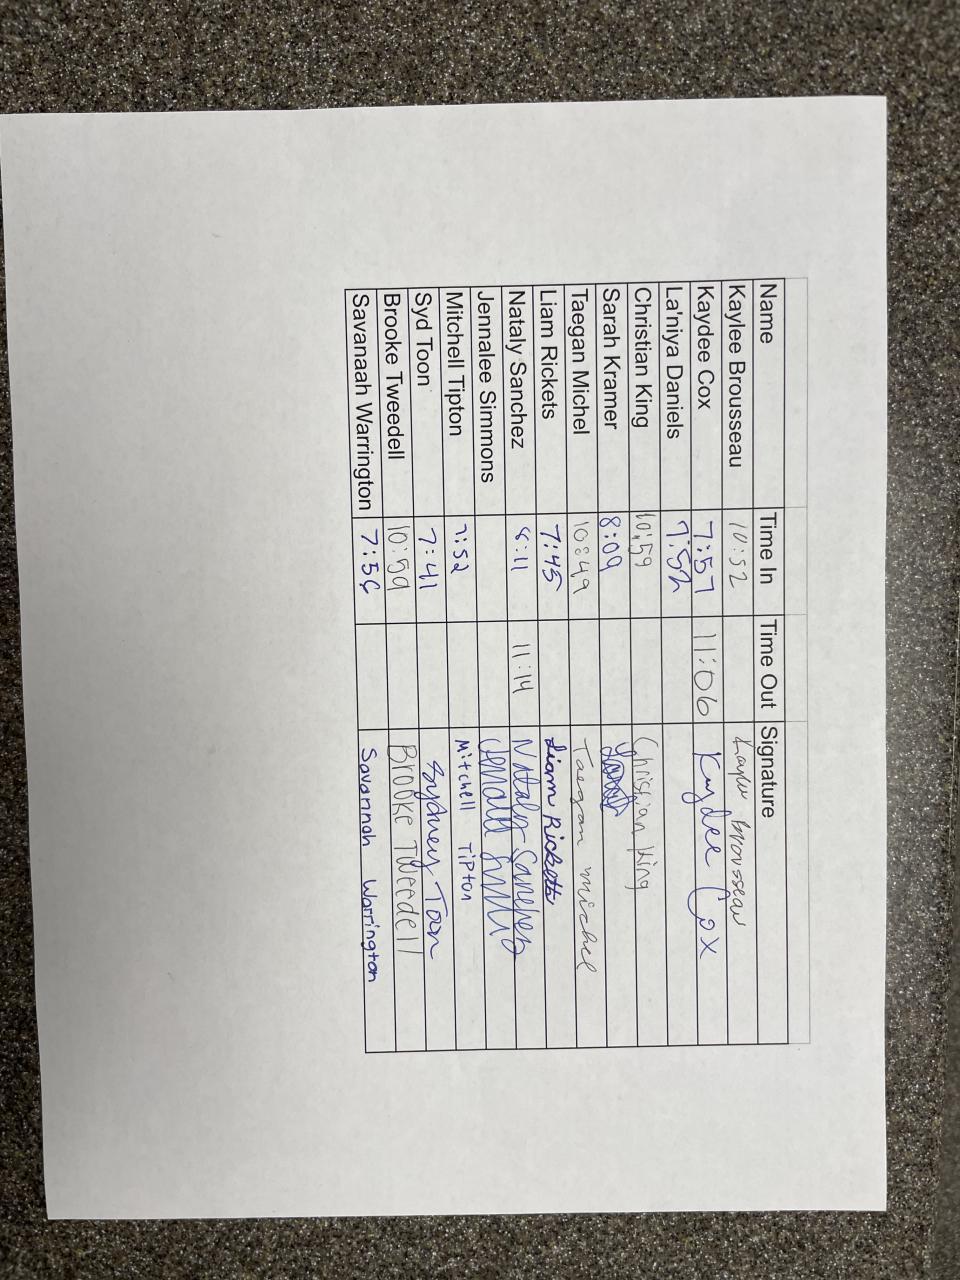 Name Time In Time Out Signature
Kaylee Brousseau 10:52 Kaylee Brousseau
Kaydee Cox 7:57 11:06 Kaydee Cox
La'niya Daniels 7:52
Christian King 10:59 Christian King
Sarah Kramer 8:09
Taegan Michel 10:49 Taegan Michel
Liam Rickets 7:45 Liam Ricketts
Nataly Sanchez 8:11 11:14 Nataly Sanchez
Jennalee Simmons
Mitchell Tipton 7:52 Mitchell Tipton
Syd Toon 7:41 Sydney Toon
Brooke Tweedell 10:59 Brooke Tweedell
Savanaah Warrington 7:56 Savannah Warrington